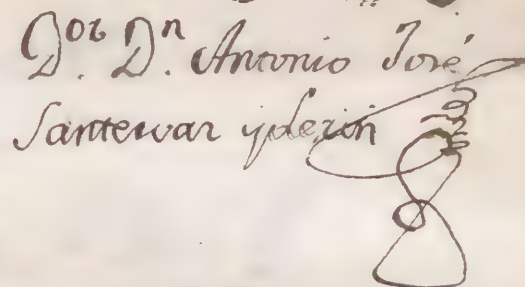 D.or D.n Antonio José
Santervar y